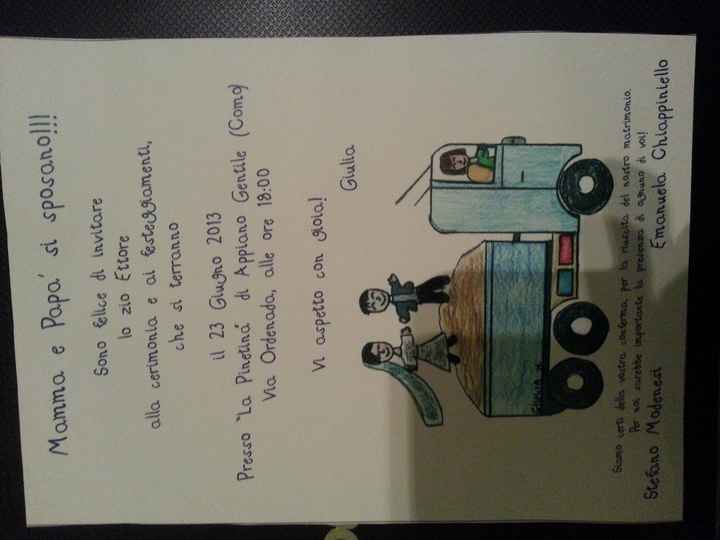 Mamma e Papa' si sposano!!!
Sono felice di invitare
lo zio Ettore
alla cerimonia e ai festeggiamenti,
che si terranno
il 23 Giugno 2013
Presso "La Pinetina" di Appiano Gentile (Como)
Via Ordenada, alle ore 18:00
Vi aspetto con gioia!
Giulia
GIULIA M.
Siamo certi della vostra conferma, per la riuscita del nostro matrimonio.
Per noi sarebbe importante la presenza di ognuno di voi!
Stefano Modenesi Emanuela Chiappiniello